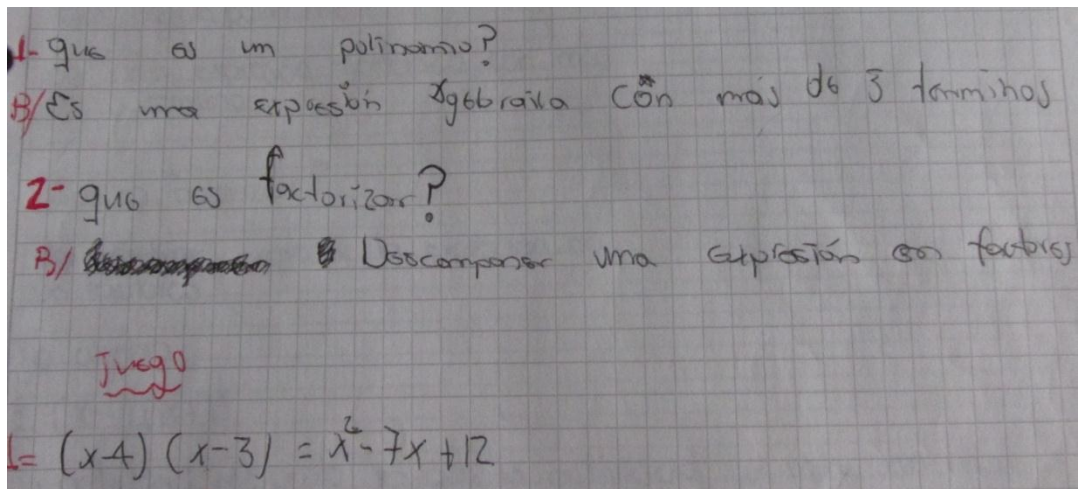 1- que es un polinomio?
R/ Es una expresión algebraica con más de 3 terminos
2- que es factorizar?
R/ Descomponer una expresión en factores
Juego
1= (x-4) (x-3) = x²- 7x + 12